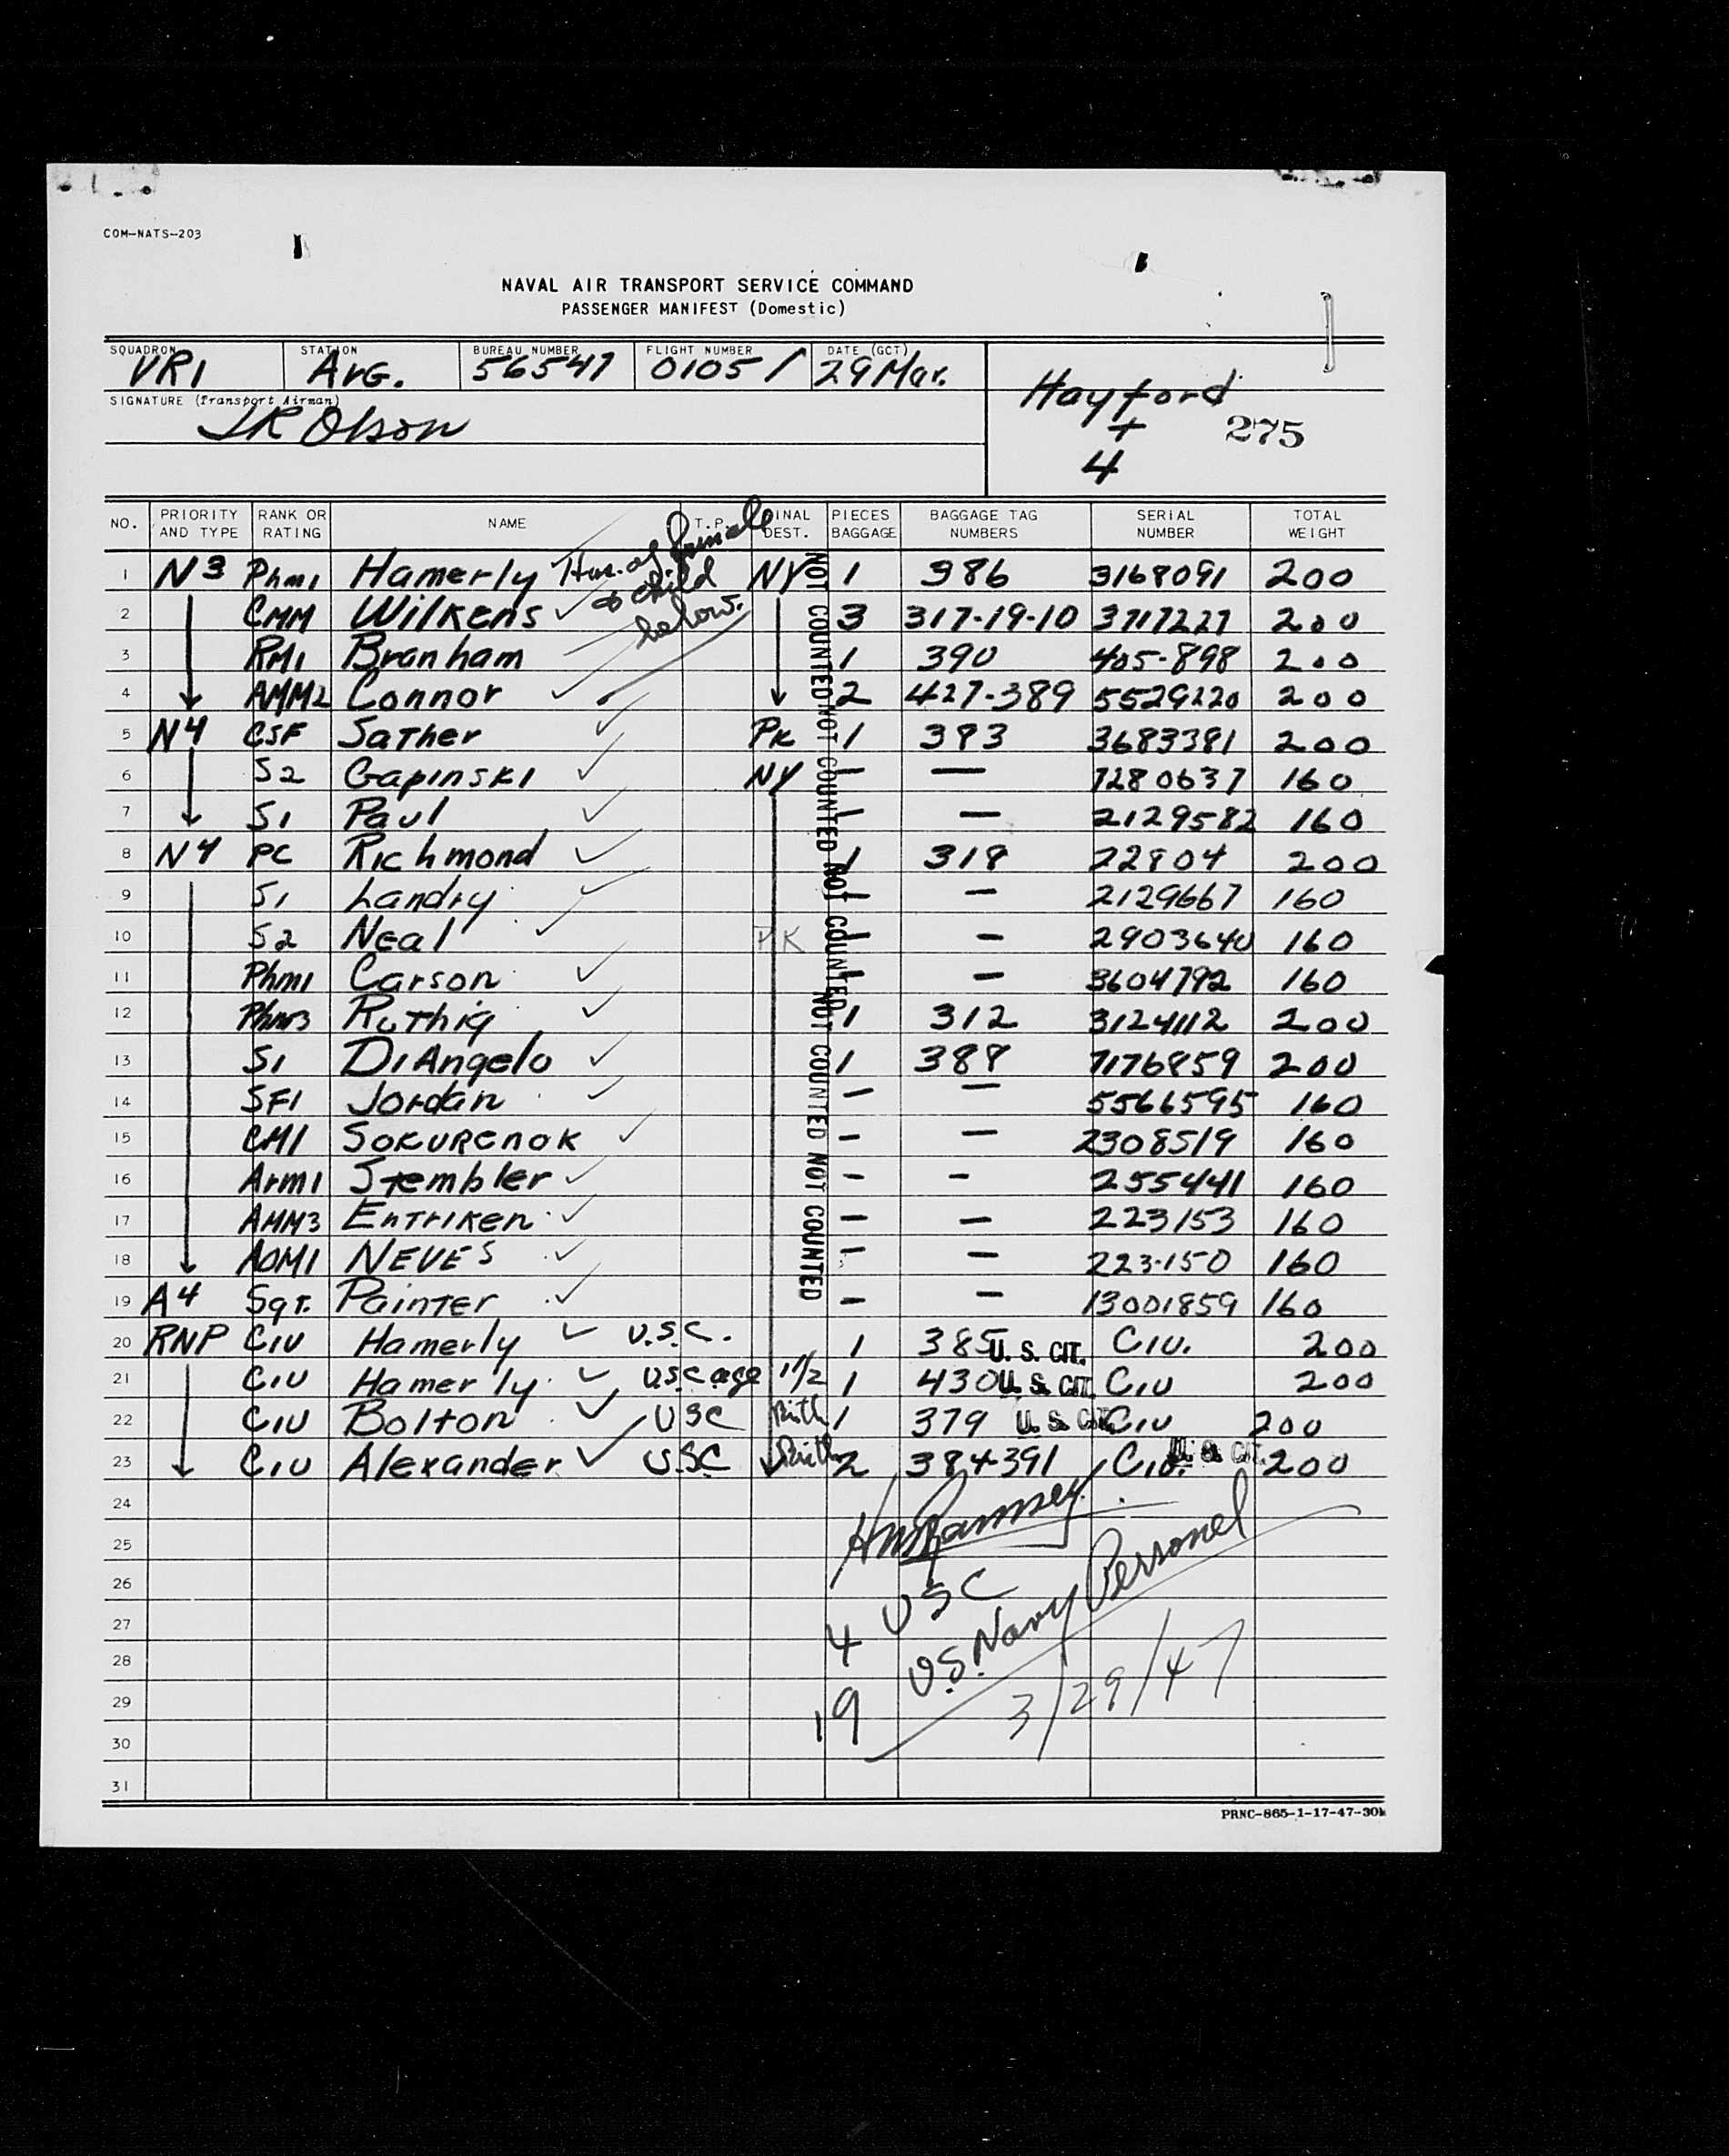 COM-NATS-203
NAVAL AIR TRANSPORT SERVICE COMMAND
PASSENGER MANIFEST (Domestic)
SQUADRON STATION BUREAU NUMBER FLIGHT NUMBER DATE (GCT)
VR1 ArG. 56547 0105 / 29 Mar.
SIGNATURE (Transport Airman)
JR Olson
Hayford
+
4
275
NO. PRIORITY AND TYPE RANK OR RATING NAME T.P. FINAL DEST. PIECES BAGGAGE BAGGAGE TAG NUMBERS SERIAL NUMBER TOTAL WEIGHT
Hus. of female
& child
below.
1 N3 Phm1 Hamerly NY 1 386 3168091 200
2 CMM Wilkens 3 317-19-10 3717227 200
3 RM1 Branham 1 390 405-898 200
4 AMM2 Connor 2 427-389 5529220 200
5 N4 CSF Sather PK 1 383 3683381 200
6 S2 Gapinski NY — — 7280637 160
7 S1 Paul — — 2129582 160
8 N4 PC Richmond 1 318 22804 200
9 S1 Landry — — 2129667 160
10 S2 Neal PK — — 2903640 160
11 Phm1 Carson — — 3604792 160
12 Phm3 Ruthig 1 312 3124112 200
13 S1 DiAngelo 1 388 7176859 200
14 SF1 Jordan — — 5566595 160
15 CM1 Sokurenok — — 2308519 160
16 Arm1 Stembler — — 255441 160
17 AMM3 Entriken — — 223153 160
18 AOM1 NEVES — — 223-150 160
19 A4 Sgt. Painter — — 13001859 160
20 RNP Civ Hamerly U.S.C. 1 385 U. S. CIT. Civ. 200
21 Civ Hamerly USC age 1 1/2 1 430 U. S. CIT. Civ 200
22 Civ Bolton USC Birth 1 379 U. S. CIT. Civ 200
23 Civ Alexander U.S.C Birth 2 384-391 Civ. U. S. CIT. 200
NOT COUNTED NOT COUNTED NOT COUNTED NOT COUNTED NOT COUNTED
24
25 Ramsey
26
27 4 USC
28
29 19 U.S. Navy Personel
3/29/47
30
31
PRNC-865-1-17-47-30M